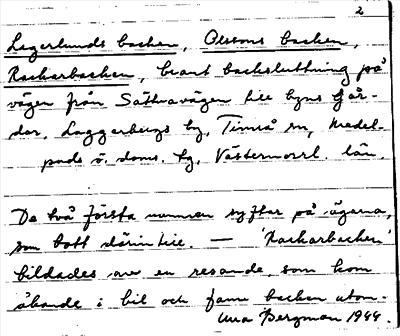 2
Lagerlunds backen, Olssons backen,
Rackarbacken, brant backsluttning på
vägen från Sättnavägen till byns Går-
dar, Laggerbergs by, Timrå sn, Medel-
pads ö. doms. tg, Västernorrl. län.
De två första namnen syftar på ägarna,
som bott därintill. — 'Rackarbacken'
bildades av en resande, som kom
åkande i bil och fann backen utom-
Una Bergman 1944.